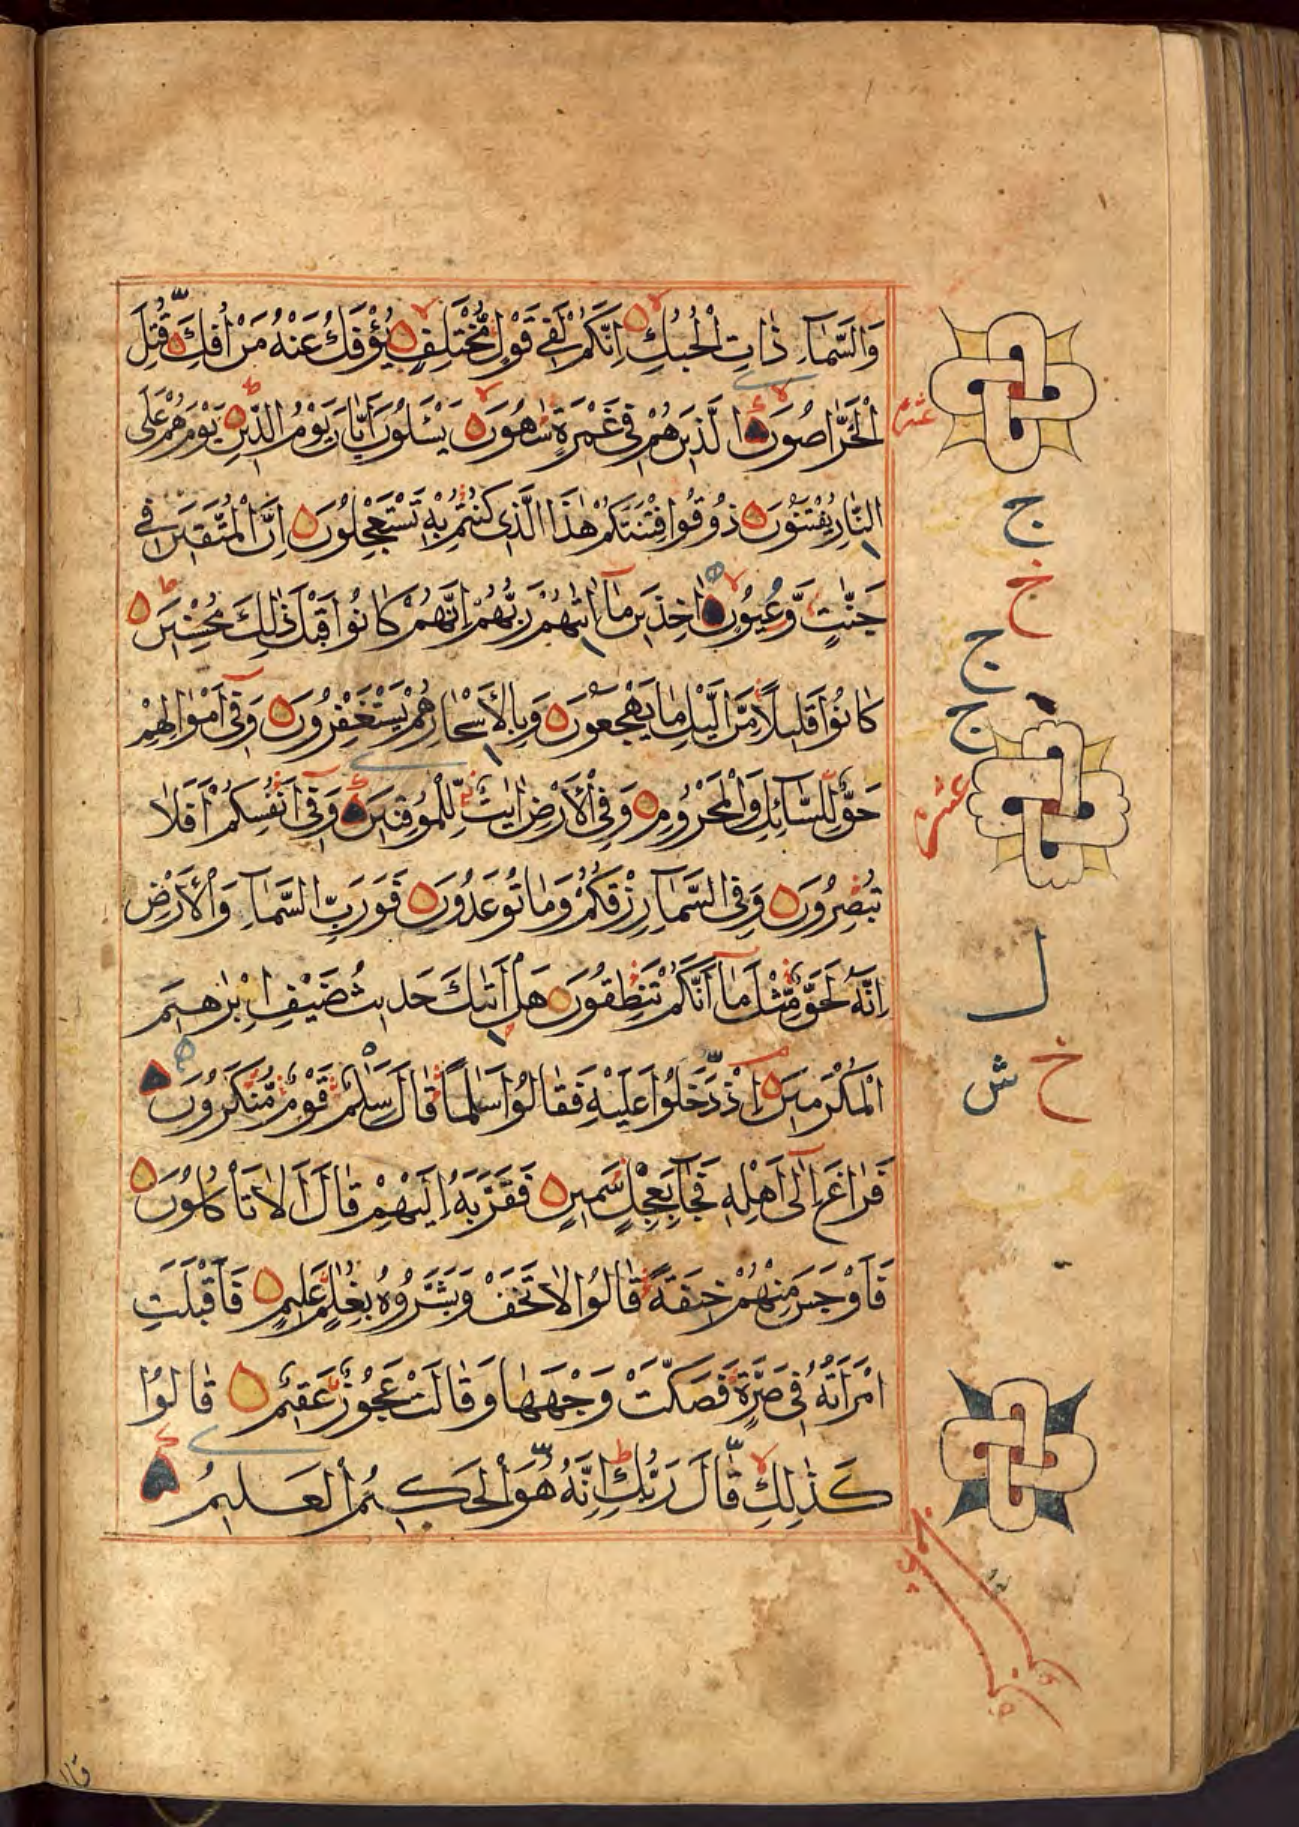 وَالسَّمَآءِ ذَاتِ الْحُبُكِ اِنَّكُمْ لَفِی قَوْلٍ مُّخْتَلِفٍ یُؤْفَكُ عَنْهُ مَنْ اُفِكَ قُتِلَ
الْخَرّٰصُوْنَ الَّذِیْنَ هُمْ فِیْ غَمْرَةٍ سَاهُوْنَ یَسْـَٔلُوْنَ اَیَّانَ یَوْمُ الدِّیْنِ یَوْمَ هُمْ عَلَی
النَّارِ یُفْتَنُوْنَ ذُوْقُوْا فِتْنَتَكُمْ هٰذَا الَّذِیْ كُنْتُمْ بِهٖ تَسْتَعْجِلُوْنَ اِنَّ الْمُتَّقِیْنَ فِیْ
جَنّٰتٍ وَّعُیُوْنٍ اٰخِذِیْنَ مَآ اٰتٰىهُمْ رَبُّهُمْ اِنَّهُمْ كَانُوْا قَبْلَ ذٰلِكَ مُحْسِنِیْنَ
كَانُوْا قَلِیْلًا مِّنَ الَّیْلِ مَا یَهْجَعُوْنَ وَبِالْاَسْحَارِ هُمْ یَسْتَغْفِرُوْنَ وَفِیْٓ اَمْوَالِهِمْ
حَقٌّ لِّلسَّآئِلِ وَالْمَحْرُوْمِ وَفِی الْاَرْضِ اٰیٰتٌ لِّلْمُوْقِنِیْنَ وَفِیْٓ اَنْفُسِكُمْ اَفَلَا
تُبْصِرُوْنَ وَفِی السَّمَآءِ رِزْقُكُمْ وَمَا تُوْعَدُوْنَ فَوَرَبِّ السَّمَآءِ وَالْاَرْضِ
اِنَّهٗ لَحَقٌّ مِّثْلَ مَآ اَنَّكُمْ تَنْطِقُوْنَ هَلْ اَتٰىكَ حَدِیْثُ ضَیْفِ اِبْرٰهِیْمَ
الْمُكْرَمِیْنَ اِذْ دَّخَلُوْا عَلَیْهِ فَقَالُوْا سَلٰمًا قَالَ سَلٰمٌ قَوْمٌ مُّنْكَرُوْنَ
فَرَاغَ اِلٰٓی اَهْلِهٖ فَجَآءَ بِعِجْلٍ سَمِیْنٍ فَقَرَّبَهٗٓ اِلَیْهِمْ قَالَ اَلَا تَاْكُلُوْنَ
فَاَوْجَسَ مِنْهُمْ خِیْفَةً قَالُوْا لَا تَخَفْ وَبَشَّرُوْهُ بِغُلٰمٍ عَلِیْمٍ فَاَقْبَلَتِ
امْرَاَتُهٗ فِیْ صَرَّةٍ فَصَكَّتْ وَجْهَهَا وَقَالَتْ عَجُوْزٌ عَقِیْمٌ قَالُوْا
كَذٰلِكِ قَّالَ رَبُّكِ اِنَّهٗ هُّوَ الْحَكِیْمُ الْعَلِیْمُ
عشر
ج
خ
ج
ج
عشر
ل
خ ش
قال